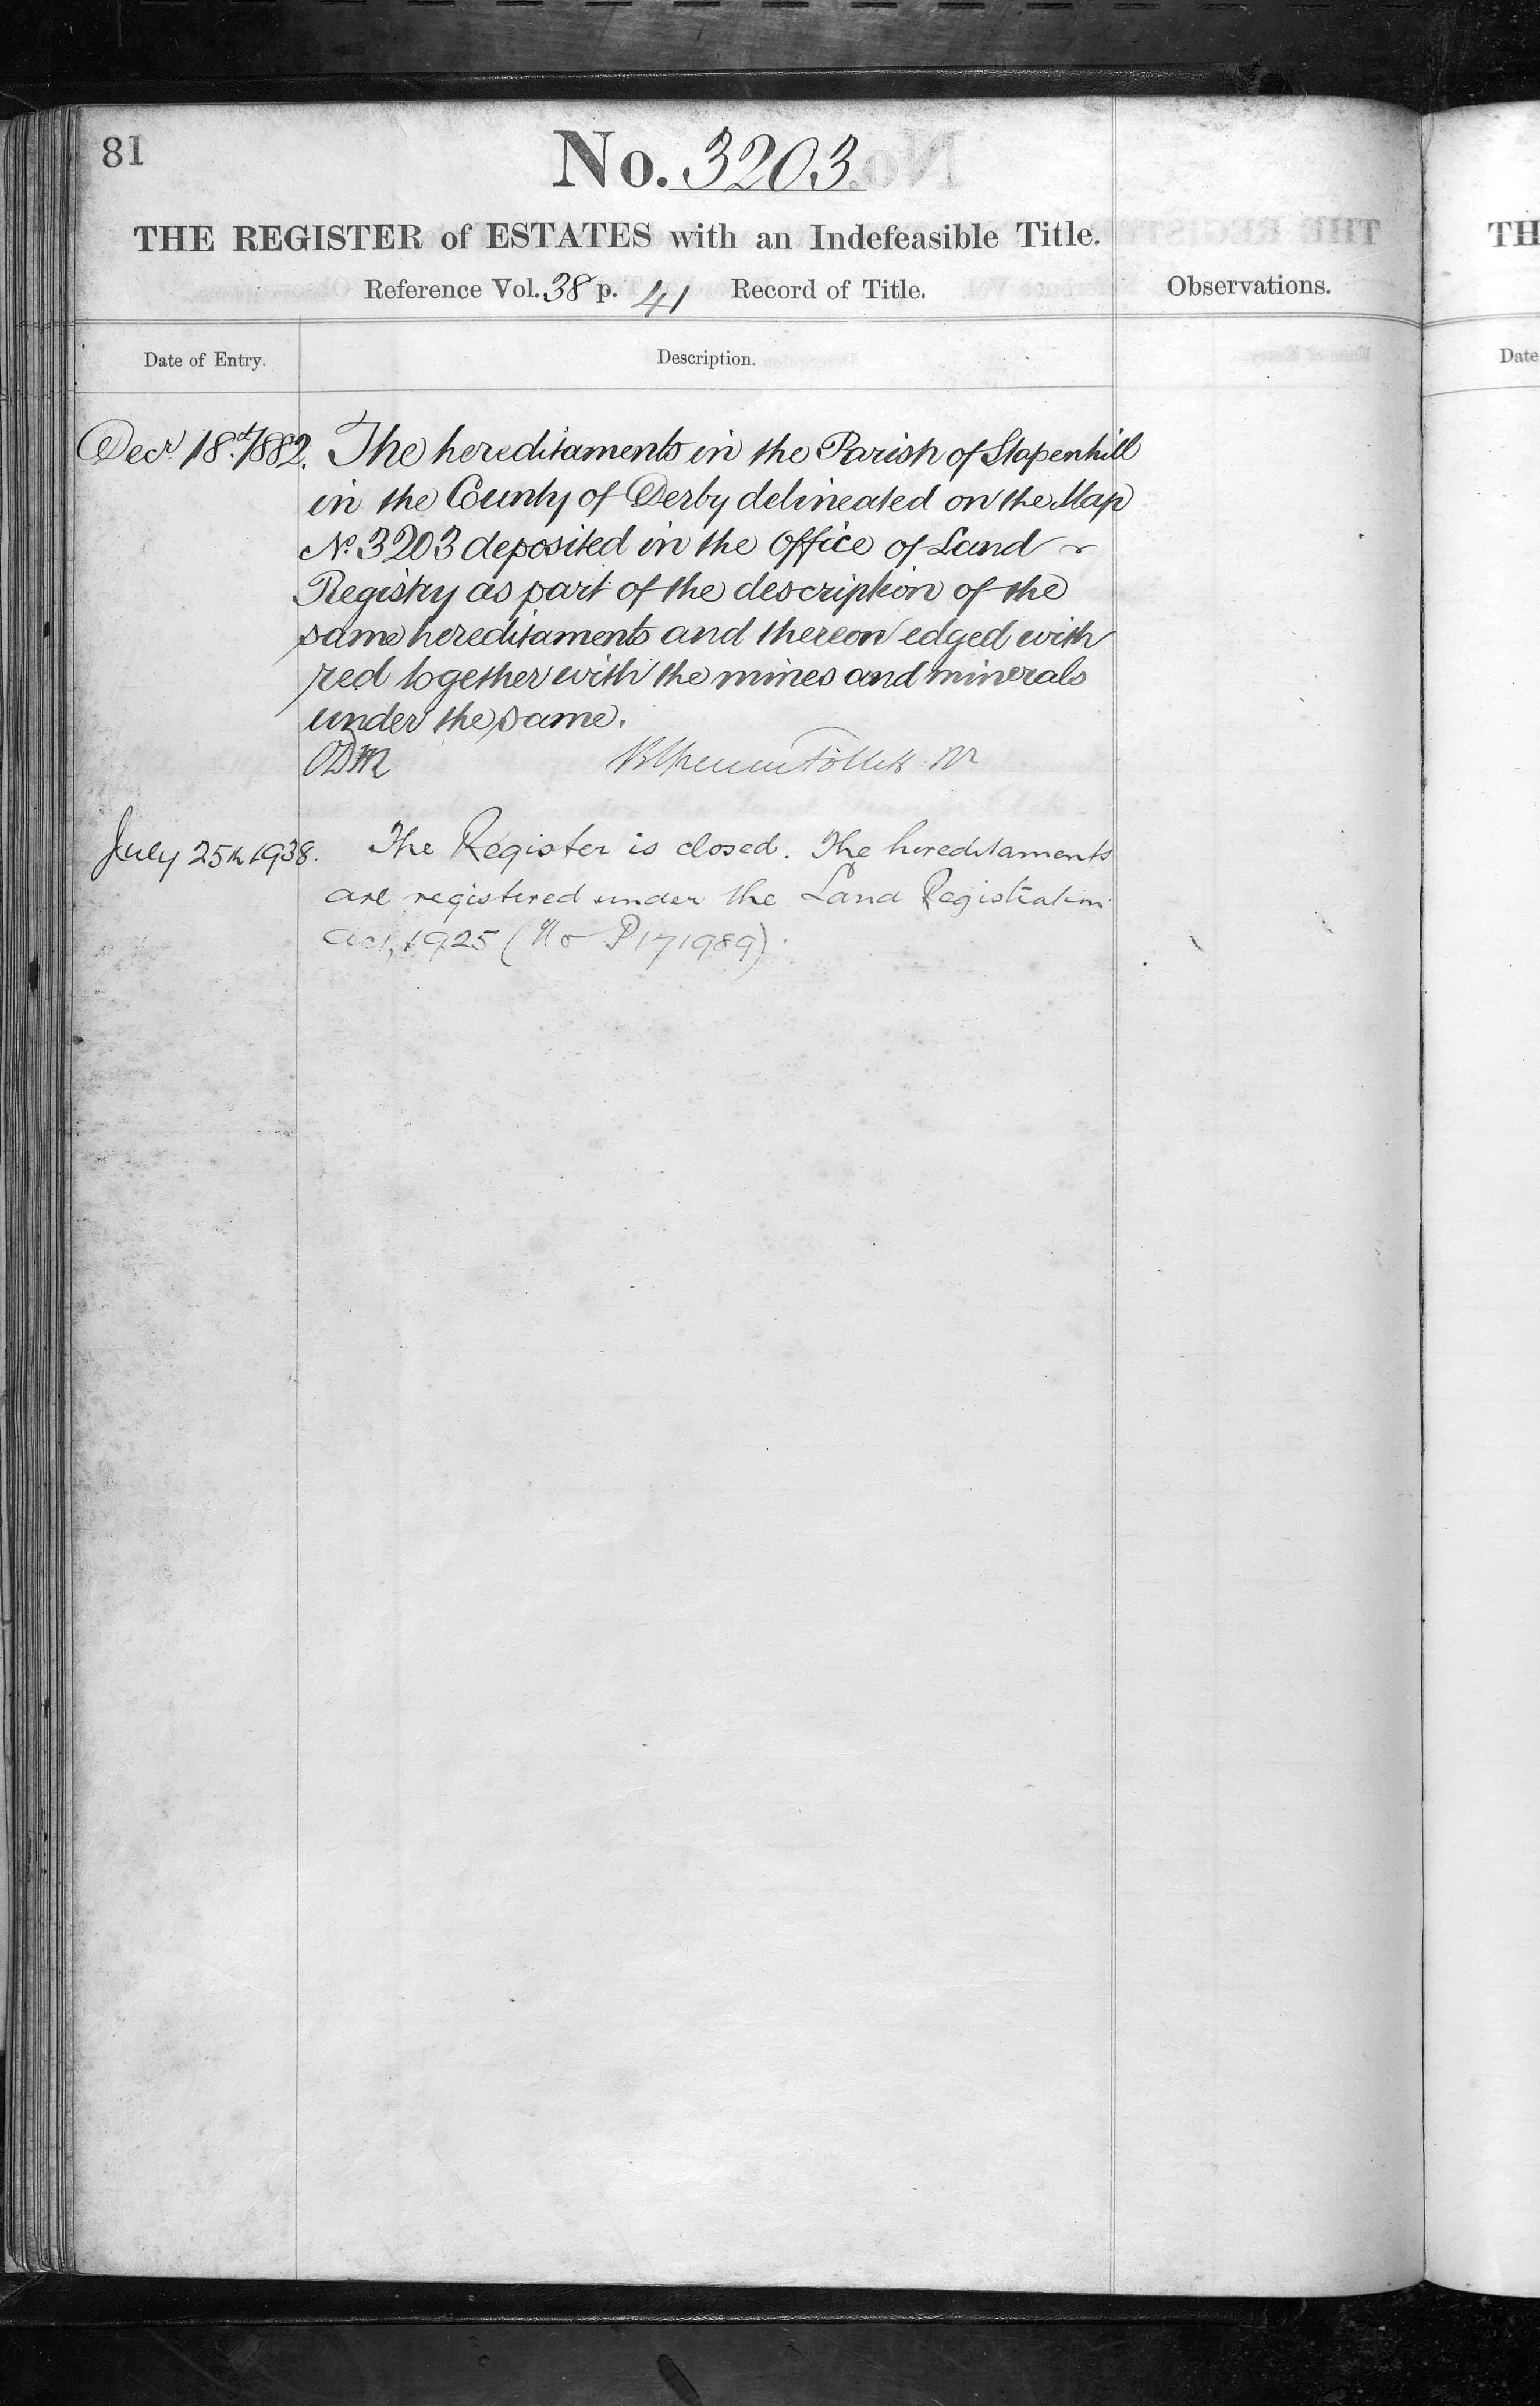 81
No. 3203
THE REGISTER of ESTATES with an Indefeasible Title.
Reference Vol. 38 p. 41 Record of Title.
Observations.
Date of Entry.
Description.
Decr 18th 1882. The hereditaments in the Parish of Stapenhill
in the County of Derby delineated on the Map
No. 3203 deposited in the Office of Land
Registry as part of the description of the
same hereditaments and thereon edged with
red together with the mines and minerals
under the same.
July 25th 1938. The Register is closed. The hereditaments
are registered under the Land Registration
Act, 1925 (No P171989).
TH
Date